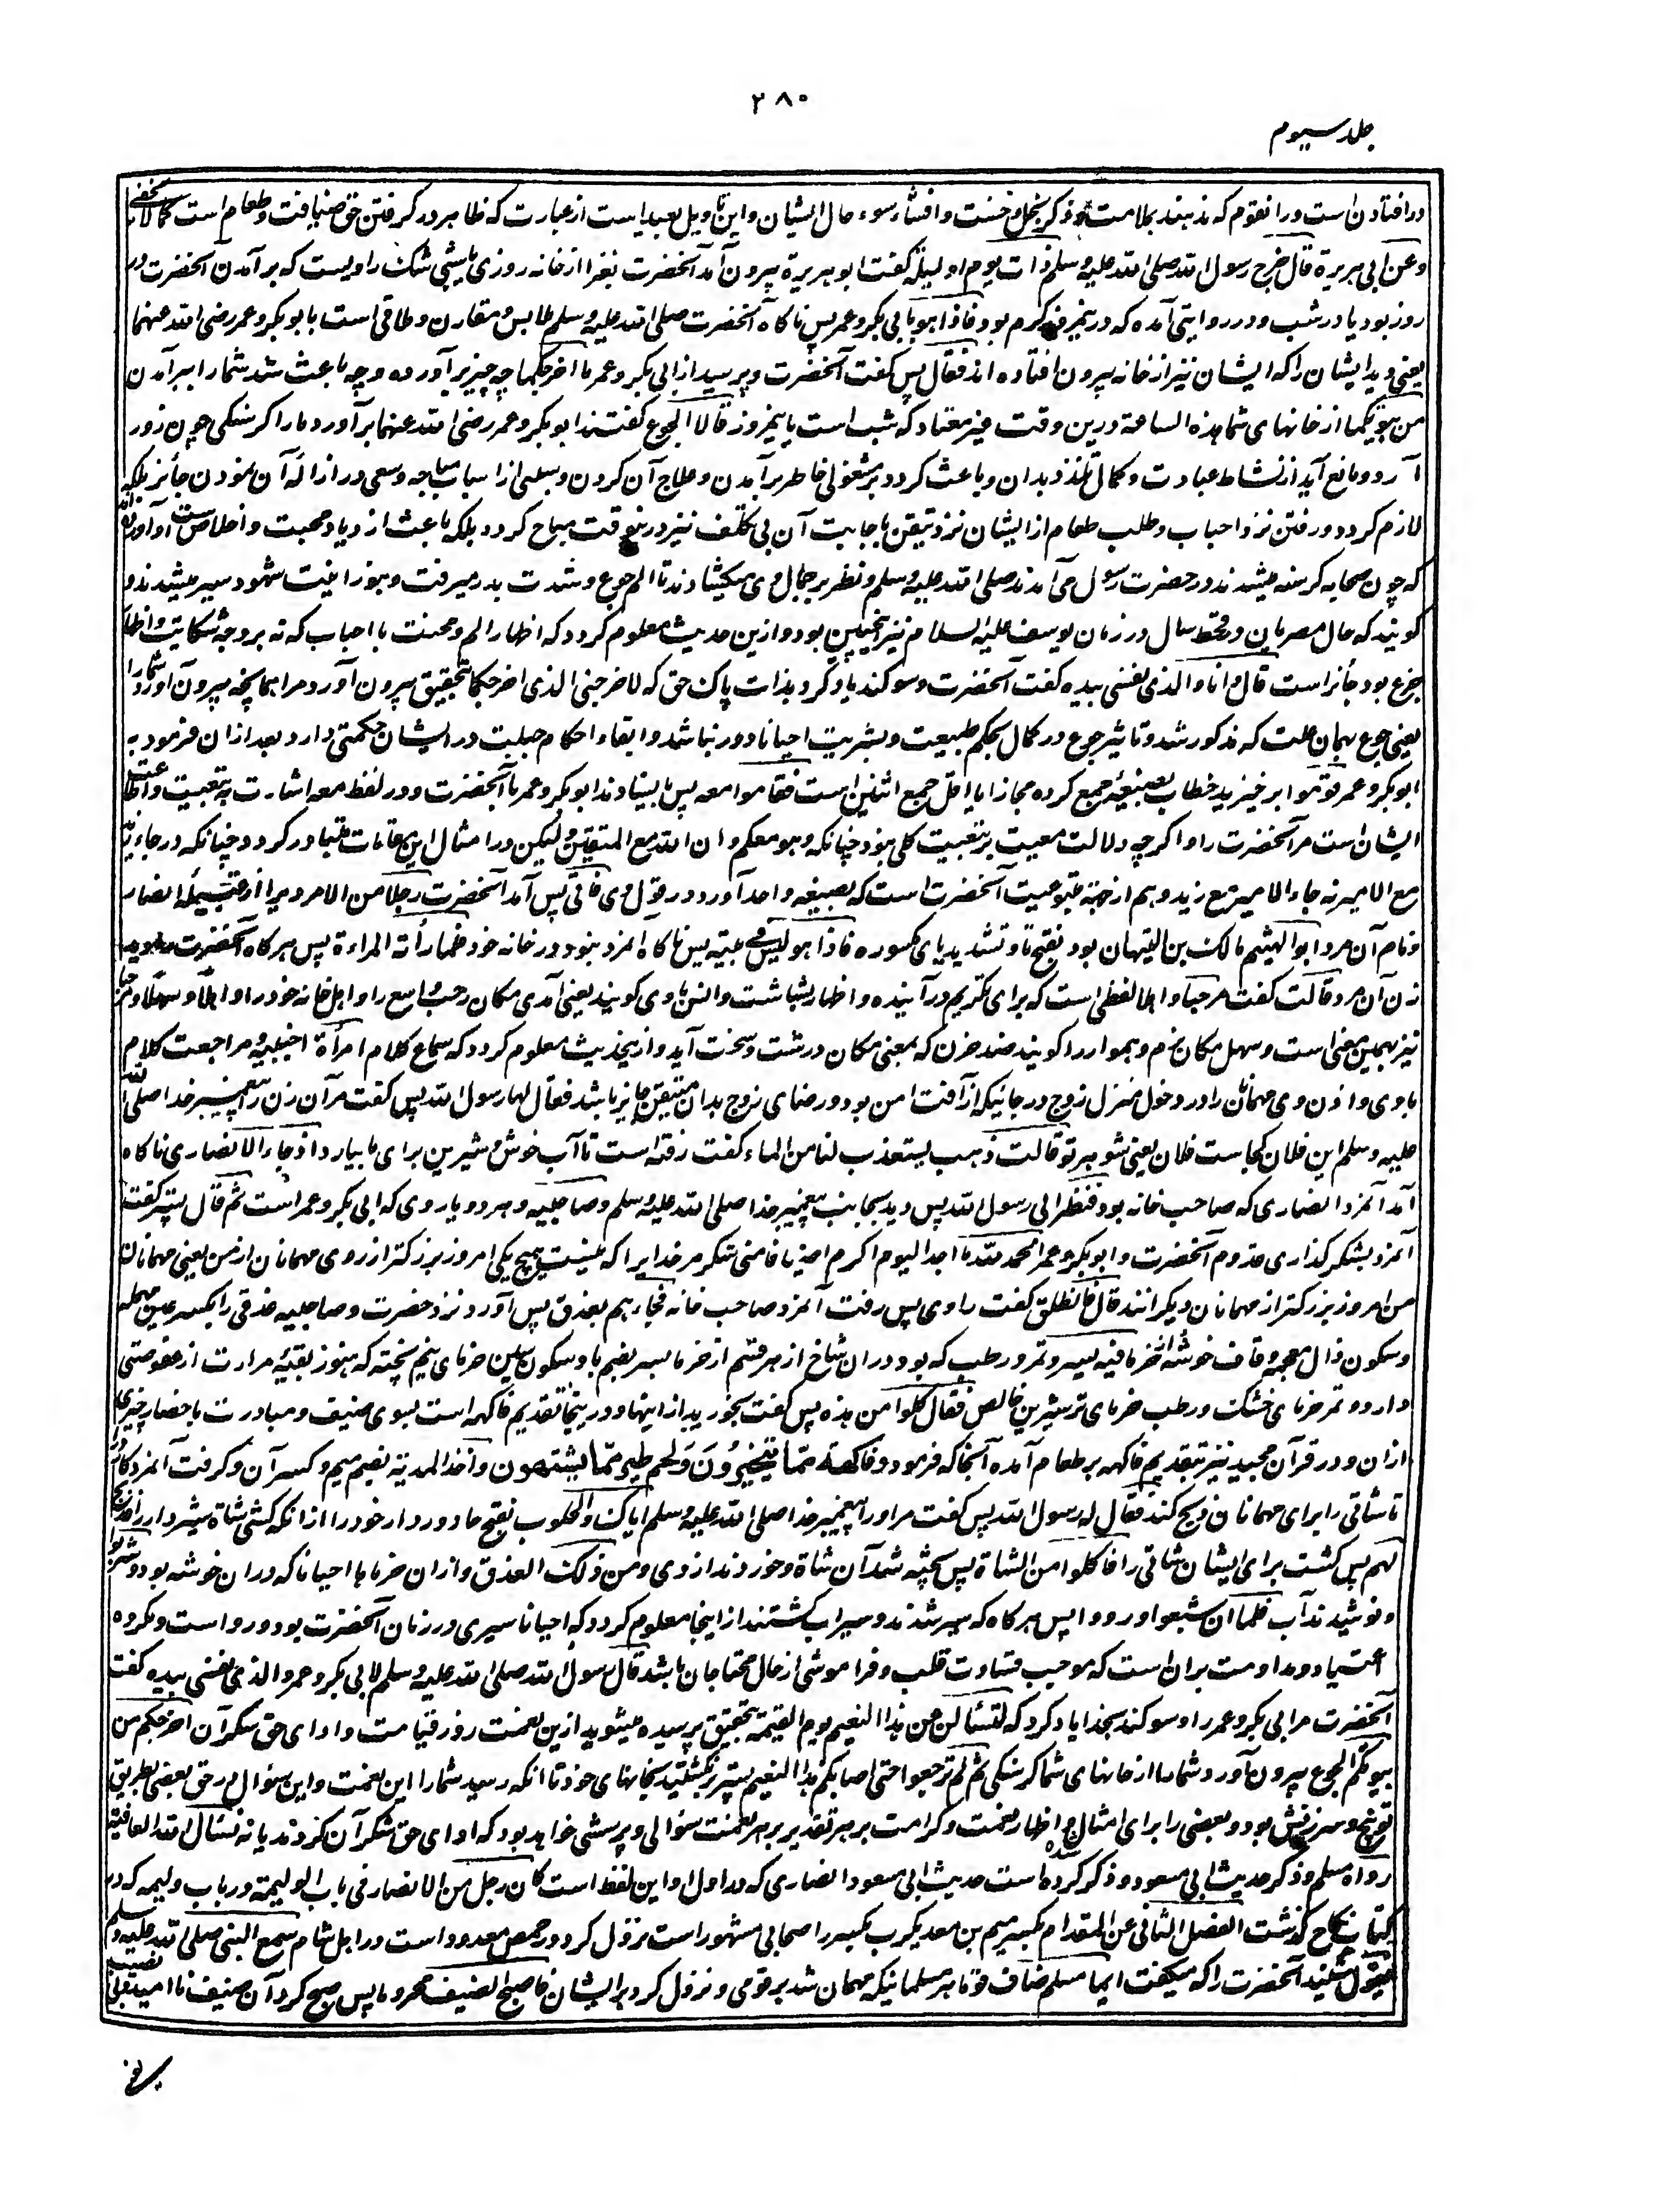 ۲۸۰
جلد سیوم
در افتادن است در انقوم که ندهند بملامت و ذکر بخل و خست و افشاء سوء حال ایشان و این تاویل بعید است از عبارت که ظاهر در گرفتن حق ضیافت و طعام است کمالا یخفی
وعن ابی هریرة قال خرج رسول الله صلی الله علیه وسلم ذات یوم او لیلة گفت ابو هریرة بیرون آمد آنحضرت نفرا از خانه روزی یا شبی شک راویست که برآمدن آنحضرت در
روز بود یا در شب و در روایتی آمده که در نیمروز گرم بود فاذا هو بابی بکر و عمر پس ناگاه آنحضرت صلی الله علیه وسلم ملابس و مقارن و ملاقی است با بو بکر و عمر رضی الله عنهما
یعنی دید ایشان را که ایشان نیز از خانه بیرون افتاده اند فقال پس گفت آنحضرت و پرسید از ابی بکر و عمر ما اخرجکما چه چیز برآورده و چه باعث شد شما را ببرآمدن
من بیوتکما از خانهای شما هذه الساعة درین وقت غیر معتاد که شب است یا نیمروز قالا الجوع گفتند ابو بکر و عمر رضی الله عنهما برآورد ما را گرسنگی چون زور
آرد و مانع آید از نشاط عبادت و کمال تلذذ بدان و باعث گردد بر مشغولی خاطر برآمدن و علاج آن کردن و سببی از اسباب مباحه و سعی در ازالهٔ آن نمودن جائز بلکه
لازم گردد و رفتن نزد احباب و طلب طعام از ایشان نزد تیقن باجابت آن بی تکلف نیز درینوقت مباح گردد بلکه باعث ازدیاد محبت و اخلاص است و آورده اند
که چون صحابه گرسنه میشدند در حضرت رسول می آمدند صلی الله علیه وسلم و نظر بر جمال وی میگشادند تا الم جوع و شدت بدر میرفت و بنور انیت شهود سیر میشدند و
گویند که حال مصریان در قحط سال در زمان یوسف علیه السلام نیز اینچنین بود و ازین حدیث معلوم گردد که اظهار الم و محنت با احباب که نه بر وجه شکایت و اظهار
جزع بود جائز است قال و انا والذی نفسی بیده گفت آنحضرت و سوگند یاد کرد بذات پاک حق که لاخرجنی الذی اخرجکما بتحقیق بیرون آورد مرا همانچه بیرون آورد شما را
یعنی جوع بهمان علت که مذکور شد و تاثیر جوع در کمال بحکم طبیعت و بشریت احیانا دور نباشد و ابقاء احکام جبلت در ایشان حکمتی دارد بعد ازان فرمود به
ابو بکر و عمر قوموا برخیزید خطاب بصیغهٔ جمع کرده مجازا یا اقل جمع اثنین است فقاموا معه پس باستادند ابو بکر و عمر با آنحضرت و در لفظ معه اشارت به تبعیت و اطاعت
ایشان است مر آنحضرت را و اگرچه دلالت معیت بر تبعیت کلی نبود چنانکه و هو معکم و ان الله مع المتقین و لیکن در امثال این مقامات متبادر گردد چنانکه در جاء زید
مع الامیر نه جاء الامیر مع زید و هم از جهة متبوعیت آنحضرت است که بصیغه واحد آورد در قول وی فاتی پس آمد آنحضرت رجلا من الانصار مردی را از قبیلهٔ انصار
و نام آن مرد ابو الهیثم مالک بن التیهان بود بفتح تا و تشدید یای مکسوره فاذا هو لیس فی بیته پس ناگاه آنمرد نبود در خانه خود فلما رأته المراءة پس هرگاه آنحضرت را دید
زن آن مرد قالت گفت مرحبا و اهلا لفظی است که برای تکریم در آینده و اظهار بشاشت و انس با وی گویند یعنی آمدی مکان رحب و واسع را و اهل خانه خود را و اهلا و سهلا و مرحبا
نیز بهمین معنی است و سهل مکان نرم و هموار را گویند ضد حزن که بمعنی مکان درشت و سخت آید و ازینحدیث معلوم گردد که سماع کلام امرأة اجنبیه و مراجعت کلام
با وی و اذن وی مهمان را در دخول منزل زوج در جائیکه از آفت امن بود و رضای زوج بدان متیقن جایز باشد فقال لها رسول الله پس گفت مر آن زن را پیغمبر خدا صلی الله
علیه وسلم این فلان کجاست فلان یعنی شوهر تو قالت ذهب یستعذب لنا من الماء گفت رفته است تا آب خوش و شیرین برای ما بیارد اذ جاء الانصاری ناگاه
آمد آنمرد انصاری که صاحب خانه بود فنظر الی رسول الله پس دید بجانب پیغمبر خدا صلی الله علیه وسلم و صاحبیه و هر دو یار وی که ابی بکر و عمر است ثم قال پستر گفت
آنمرد بشکر گذاری قدوم آنحضرت و ابو بکر و عمر الحمد لله ما احد الیوم اکرم اضیافا منی شکر مر خدایرا که نیست هیچ یکی امروز بزرگتر از روی مهمانان از من یعنی مهمانان
من امروز بزرگتر از مهمانان دیگرانند قال فانطلق گفت راوی پس رفت آنمرد صاحب خانه فجاءهم بعذق پس آورد نزد حضرت و صاحبیه عذقی را بکسر عین مهمله
و سکون ذال معجمه و قاف خوشه از خرما فیه بسر و تمر و رطب که بود دران شاخ از هر قسم از خرما بسر بضم با و سکون سین خرمای نیم پخته که هنوز بقیهٔ مرارت از عفوصتی
دارد و تمر خرمای خشک و رطب خرمای تر شیرین خالص فقال کلوا من هذه پس گفت بخورید از اینها و درینجا تقدیم فاکهه است بسوی ضیف و مبادرت باحضار چیزی
ازان و در قرآن مجید نیز بتقدیم فاکهه بر طعام آمده آنجا که فرمود و فاکهة مما یتخیرون ولحم طیر مما یشتهون و اخذ المدیة بضم میم و کسر آن و گرفت آنمرد کارد را
تا شاتی را برای مهمانان ذبح کند فقال له رسول الله پس گفت مر او را پیغمبر خدا صلی الله علیه وسلم ایاک والحلوب بفتح حا دور دار خود را از انکه کشی شاة شیردار را فذبح
لهم پس کشت برای ایشان شاتی را فاکلوا من الشاة پس پخته شد آن شاة و خوردند از وی و من ذلک العذق و ازان خرماها احیانا که دران خوشه بود و شربوا
و نوشیدند آب فلما ان شبعوا و رووا پس هرگاه که سیر شدند و سیراب گشتند از اینجا معلوم گردد که احیانا سیری در زمان آنحضرت بود و روا است و مکروه
اعتیاد و مداومت بران است که موجب قساوت قلب و فراموشی از حال محتاجان باشد قال رسول الله صلی الله علیه وسلم لابی بکر و عمر والذی نفسی بیده گفت
آنحضرت مر ابی بکر و عمر را و سوگند بخدا یاد کرد که لتسئلن عن هذا النعیم یوم القیمة بتحقیق پرسیده میشوید ازین نعمت روز قیامت و ادای حق شکر آن اخرجکم من
بیوتکم الجوع بیرون آورد شما را از خانهای شما گرسنگی ثم لم ترجعوا حتی اصابکم هذا النعیم پستر برنگشتید بخانهای خود تا آنکه رسید شما را این نعمت و این سؤال در حق بعضی بطریق
توبیخ و سرزنش بود و بعضی را برای امتنان و اظهار نعمت و کرامت بر هر تقدیر بر هر نعمت سؤالی و پرسشی خواهد بود که ادای حق شکر آن کردند یا نه نسئال الله العافیة
رواه مسلم و ذکر حدیث ابی مسعود و ذکر کرده شده است حدیث ابی مسعود انصاری که در اول او این لفظ است کان رجل من الانصار فی باب الولیمة در باب ولیمه که در
کتاب نکاح گذشت الفصل الثانی عن المقدام بکسر میم بن معد یکرب بکسر را صحابی مشهور است نزول کرد در حمص معدود است در اهل شام سمع النبی صلی الله علیه وسلم
یقول شنید آنحضرت را که میگفت ایما مسلم ضاف قوما هر مسلمانیکه مهمان شد بر قومی و نزول کرد بر ایشان فاصبح الضیف محروما پس صبح کرد آن ضیف نا امید و بی نصیب